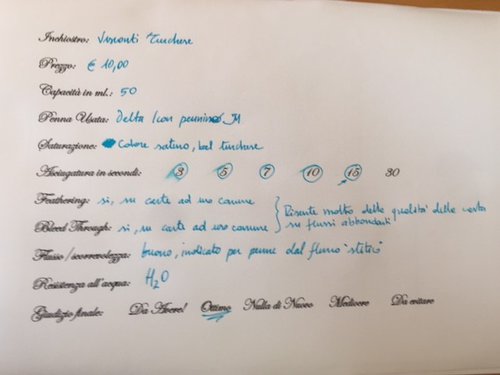 Inchiostro: Visconti Turchese
Prezzo: € 10,00
Capacità in ml.: 50
Penna Usata: Delta Icon pennino M
Saturazione: Colore saturo, bel turchese
Asciugatura in secondi: 3 5 7 10 15 30
Feathering: si, su carte ad uso comune
Bleed Through: si, su carte ad uso comune
Risente molto della qualità della carta
su flussi abbondanti
Flusso / scorrevolezza: buono, indicato per penne dal flusso "stitico"
Resistenza all'acqua: H2O
Giudizio finale: Da Avere! Ottimo Nulla di Nuovo Mediocre Da evitare